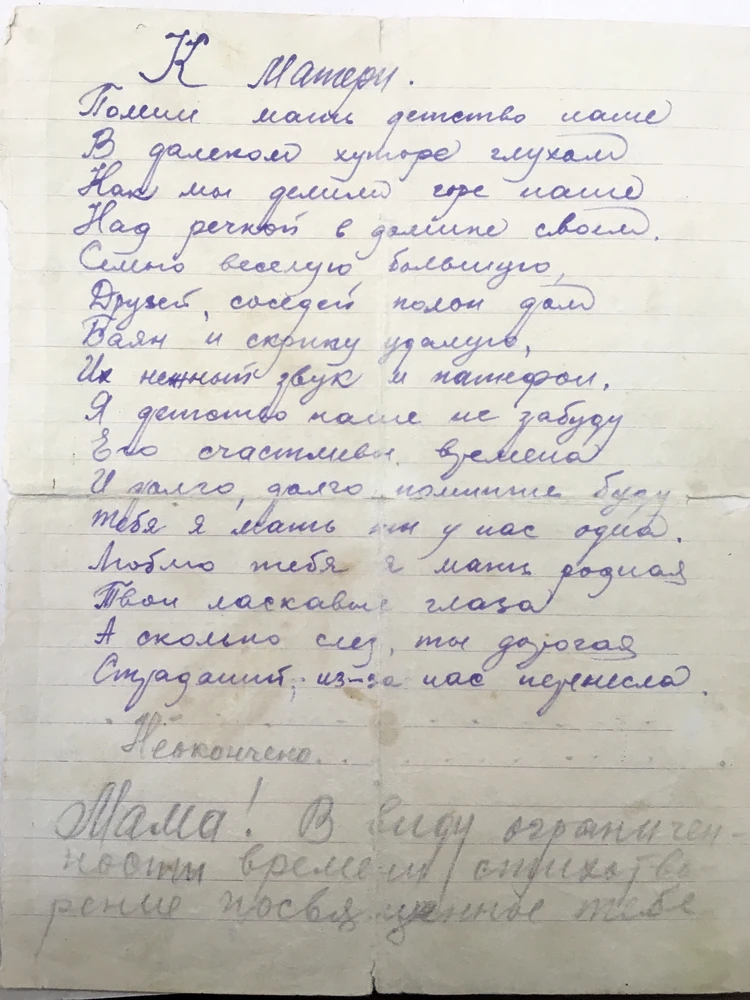 К Матери.
Помни мать детство наше
В далеком хуторе глухом
Как мы делили горе наше
Над речкой в домике своем.
Семью веселую большую,
Друзей, соседей полон дом
Баян и скрипку удалую,
Их нежный звук и патефон.
Я детство наше не забуду
Его счастливые времена
И долго, долго помнить буду
Тебя я мать ты у нас одна.
Люблю тебя я мать родная
Твои ласкавые глаза
А сколько слез, ты дорогая
Страданий, из-за нас перенесла.
Неокончено...
Мама! В виду ограничен-
ности времени стихотво-
рение посвященное тебе